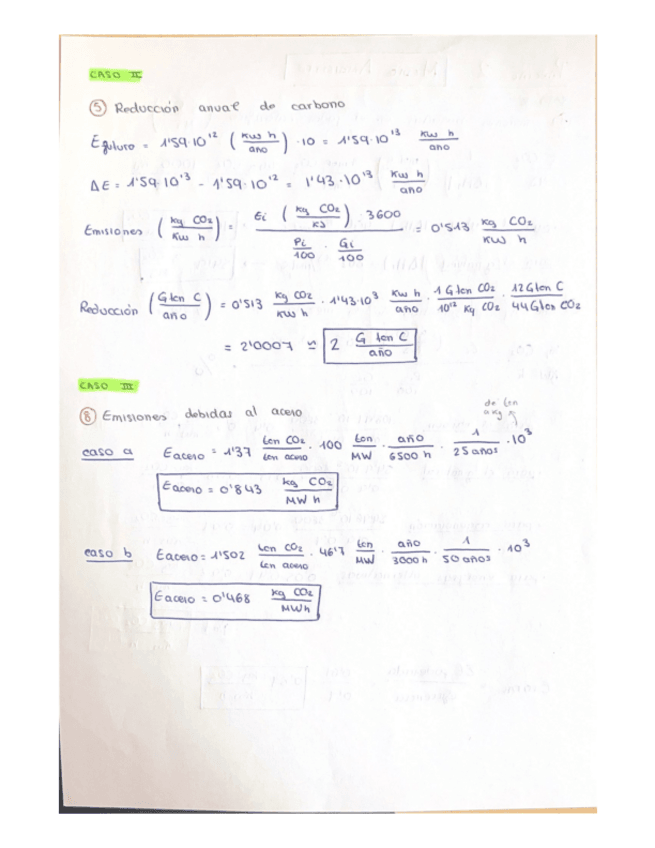 CASO II
⑤ Reducción anual de carbono
E futuro = 1'59·10^12 (Kw h / año) · 10 = 1'59·10^13 Kw h / año
ΔE = 1'59·10^13 - 1'59·10^12 = 1'43·10^13 (Kw h / año)
Emisiones (kg CO2 / Kw h) = Ei (kg CO2 / KJ) · 3600 / (Pi / 100 · Gi / 100) = 0'513 kg CO2 / KW h
Reducción (G ton C / año) = 0'513 kg CO2 / Kw h · 1'43·10^3 Kw h / año · 1 G ton CO2 / 10^12 Kg CO2 · 12 G ton C / 44 G ton CO2
= 2'0007 ≃ 2 G ton C / año
CASO III
⑧ Emisiones debidas al acero
de ton
a kg
caso a Eacero = 1'37 ton CO2 / ton acero · 100 ton / MW · año / 6500 h · 1 / 25 años · 10^3
Eacero = 0'843 kg CO2 / MW h
caso b Eacero = 1'502 ton CO2 / ton acero · 46'7 ton / MW · año / 3000 h · 1 / 50 años · 10^3
Eacero = 0'468 kg CO2 / MWh